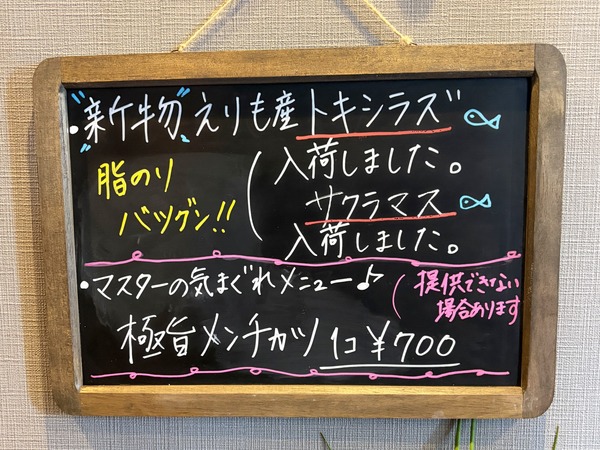 ・"新物"えりも産トキシラズ
脂のり
バツグン!!
入荷しました。
サクラマス
入荷しました。
・マスターの気まぐれメニュー♪
提供できない
場合あります
極旨メンチカツ 1コ ¥700